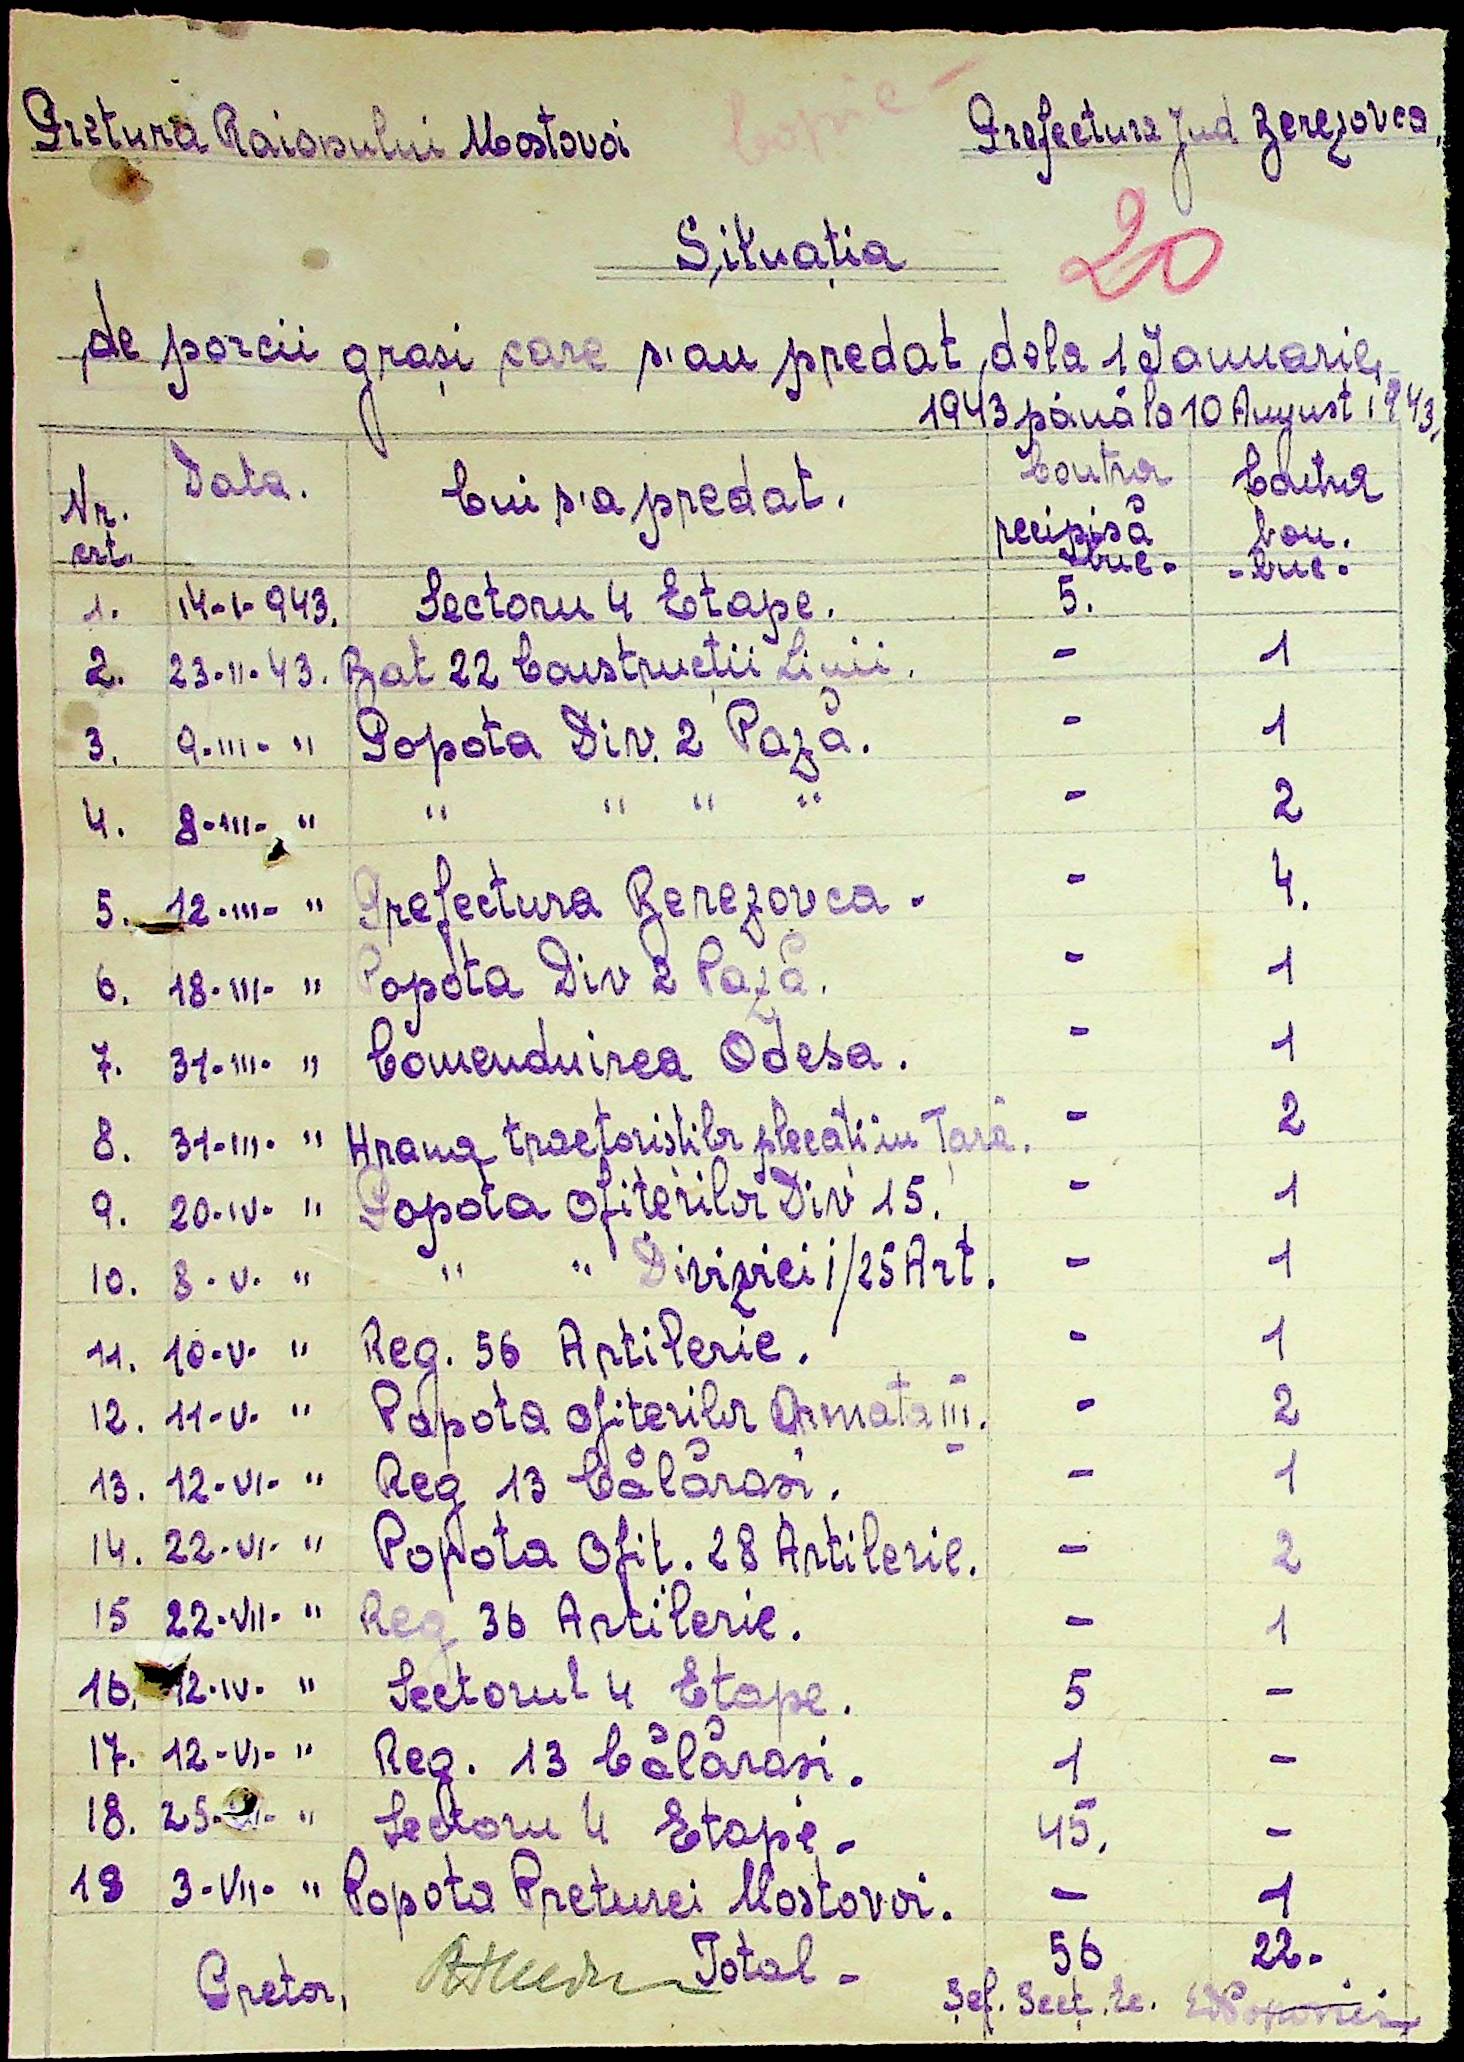 Pretura Raionului Mostovoi
Copie -
Prefectura Jud Berezovca.
Situația
20
de porcii grași care s'au predat dela 1 Ianuarie
1943 până la 10 August 1943.
Nr. crt. Data. Cui s'a predat. Contra recipisă buc. Contra bon. - buc.
1. 14-I-943. Sectoru 4 Etape. 5.
2. 23-II-43. Bat 22 Construcții Linii. - 1
3. 9-III- " Popota Div. 2 Pază. - 1
4. 8-III- " " " " " - 2
5. 12-III- " Prefectura Berezovca. - 4.
6. 18-III- " Popota Div 2 Pază. - 1
7. 31-III- " Comenduirea Odesa. - 1
8. 31-III- " Hrana tractoristilor plecați in Țară. - 2
9. 20-IV- " Popota ofiterilor Div 15. - 1
10. 8-V- " " " Diviziei i/25 Art. - 1
11. 10-V- " Reg. 56 Artilerie. - 1
12. 11-V- " Popota ofiterilor Armata III. - 2
13. 12-VI- " Reg 13 Călărasi. - 1
14. 22-VI- " Popota Ofit. 28 Artilerie. - 2
15 22-VII- " Reg 36 Artilerie. - 1
16. 12-IV- " Sectorul 4 Etape. 5 -
17. 12-VI- " Reg. 13 Călărasi. 1 -
18. 25- " Sectoru 4 Etape. 45. -
19 3-VII- " Popota Preturei Mostovoi. - 1
Total - 56 22.
Pretor,
Șef. Secț.